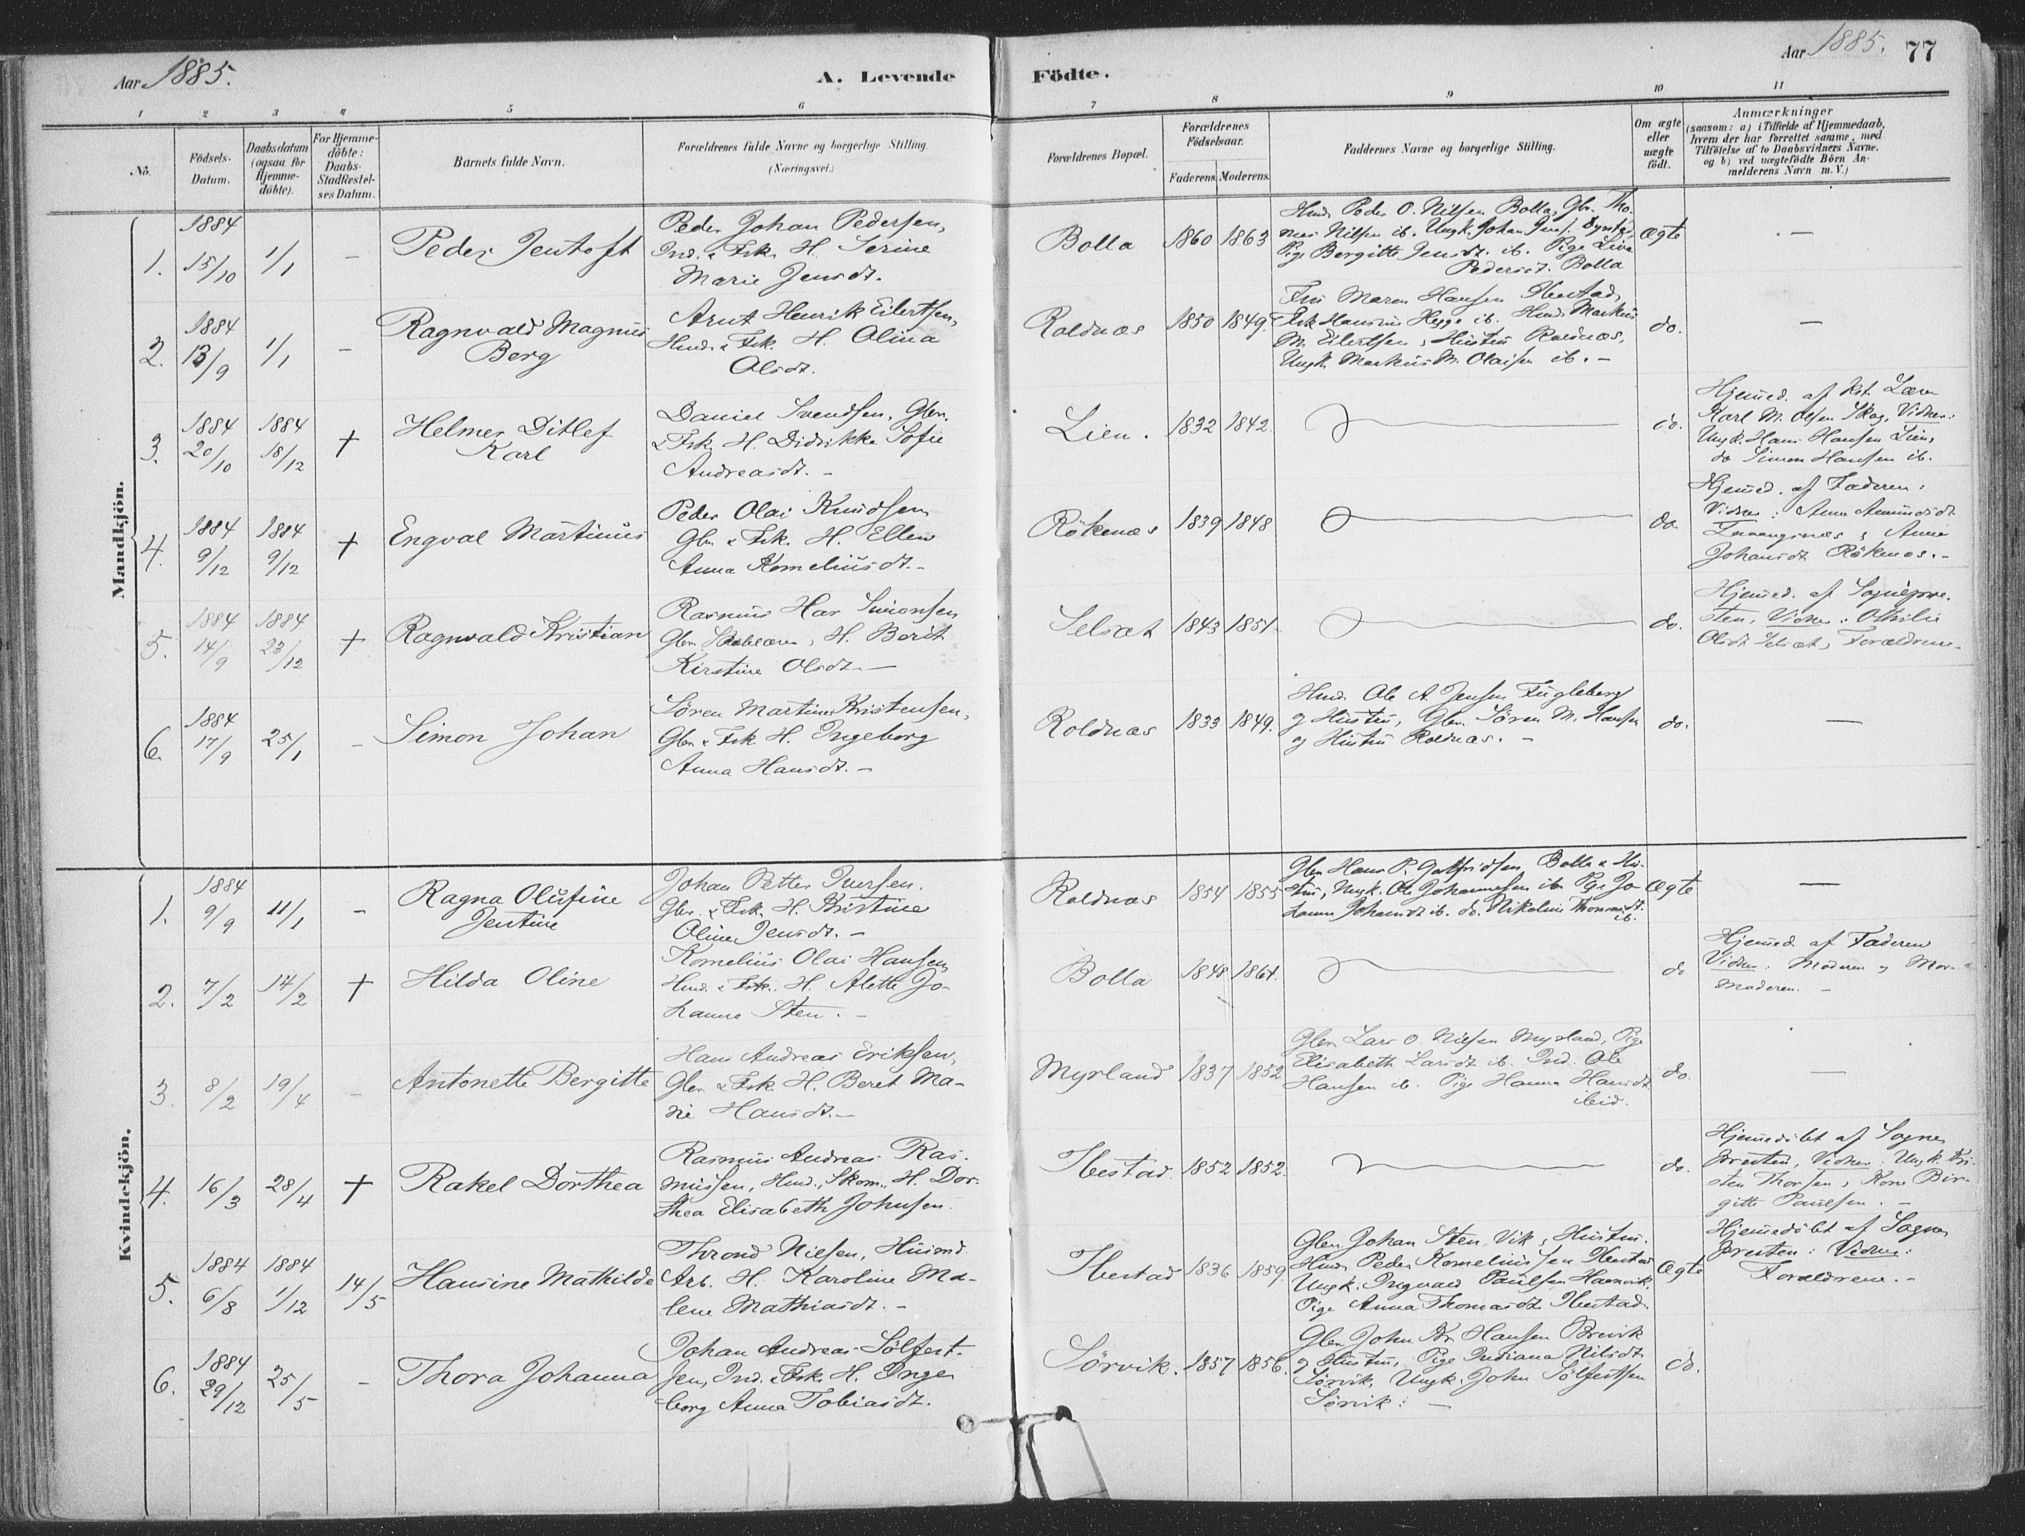 Aar 1885.
A. Levende
Födte.
Aar 1885.
77
1 2 3 4 5 6 7 8 9 10 11
No.
Födsels-
Datum.
Daabsdatum
(ogsaa for
Hjemme-
döbte).
For Hjemme-
döbte:
Daabs-
Stadfæstel-
ses Datum.
Barnets fulde Navn.
Forældrenes fulde Navne og borgerlige Stilling.
(Næringsvei.)
Forældrenes Bopæl.
Forældrenes
Födselsaar.
Faderens. Moderens.
Faddernes Navne og borgerlige Stilling.
Om ægte
eller
uægte
födt.
Anmærkninger
(saasom: a) i Tilfælde af Hjemmedaab,
hvem der har forrettet samme, med
Tilföielse af to Daabsvidners Navne.
og b) ved uægtefödte Börn An-
melderens Navn m. V.)
Mandkjön.
1.
1884
15/10
1/1
-
Peder Jentoft
Peder Johan Pedersen,
Ind. & Fsk. H. Serine
Marie Jensdt.
Bolla
1860
1863
Hmd. Peder O. Nilsen Bolla, Gbr. Tho-
mas Nilsen ib. Ungk. Johan Jens.
Pige Bergitte Jensdt. ib. Pige Lina
Pedersdt. Bolla
Ægte
-
2.
1884
13/9
1/1
-
Ragnvald Magnus
Berg
Arnt Henrik Eilertsen,
Hmd. & Fsk. H. Olina
Olsdt.
Roldnæs
1850
1849.
Fru Maren Hansen Ibestad,
Fsk Hansinus Hegge ib. Hmd. Markus
M. Eilertsen, Hustru Roldnæs,
Ungk. Markus M. Olaisen ib. -
do.
-
3.
1884
20/10
1884
18/12
+
Helmer Ditlef
Karl
Daniel Svendsen, Gbr.
& Fsk. H. Didrikke Sofie
Andreasdt. -
Lien.
1832
1842.
do.
Hjemmed. af Kst. Lærer
Karl M. Olsen Skog, Vidner:
Ungk. Hans Hansen Lien,
do Simon Hansen ib.
4.
1884
9/12
1884
9/12
+
Engval Martinus
Peder Olai Knudsen
Gbr. & Fsk. H. Ellen
Anna Korneliusdt. -
Rökenæs
1839
1848
do.
Hjemmed. af Faderen.
Vidner: Anna Amundsdt
Faavangsnæs, Anna
Johansdt Rökenæs. -
5.
1884
14/9
1884
23/12
+
Ragnvald Kristian
Rasmus Har Simonsen
Gbr. H. Berit
Kirstine Olsdt. -
Selsæt
1843
1851.
do.
Hjemmed. af Sognepre-
sten, Vidner: Othilie
Olsdt Selsæt, Forældrene.
6.
1884
17/9
25/1
-
Simon Johan
Sören Martinus Kristensen,
Gbr. & Fsk. H. Ingeborg
Anna Hansdt. -
Roldnæs
1833
1849.
Hmd. Ole A. Jensen Fugleberg
og Hustru, Gbr. Sören M. Hansen
og Hustru Roldnæs. -
do.
-
Kvindekjön.
1.
1884
9/9
11/1
-
Ragna Olufine
Jentine
Johan Petter Iversen.
Gbr. & Fsk. H. Kristine
Oline Jensdt. -
Roldnæs
1854
1855
Gbr Hans P. Gotfridsen, Bolla & Hu-
stru, Ungk. Ole Johannesen ib. Pige Jo-
hanna Johansdt ib. do. Nikoline Thomasdt.
ib.
Ægte
-
2.
7/2
14/2
+
Hilda Oline
Kornelius Olai Hansen,
Hmd. & Fsk. H. Alette Jo-
hanne Sten. -
Bolla
1848
1861.
do
Hjemmed. af Faderen
Vidner: Moderen og Mor-
moderen. -
3.
8/2
19/4
-
Antonette Bergitte
Hans Andreas Eriksen,
Gbr. & Fsk. H. Beret Ma-
rie Hansdt. -
Myrland
1837
1852
Gbr. Lars O. Nilsen Myrland, Pige
Elisabeth Larsdt ib. Ind. Ole
Hansen ib. Pige Hanna Hansdt
ibid.
do.
-
4.
16/3
28/4
+
Rakel Dorthea
Rasmus Andreas Ras-
mussen, Hmd., Skom., H. Dor-
thea Elisabeth Johnsen.
Ibestad
1852
1852.
do.
Hjemmedöbt af Sogne-
presten, Vidner: Ungk. Kri-
sten Thorsen, Kone Bir-
gitte Paulsen. -
5.
1884
6/8
1884
1/12
14/5
Hansine Mathilde
Thrond Nilsen, Husmd.
Arb. H. Karoline Ma-
lene Mathiasdt. -
Ibestad
1836
1859.
Gbr. Johan Sten, Vik, Hustru.
Hmd. Peder Korneliussen Ibestad
Ungk. Ingvald Paulsen Hamnvik,
Pige Anna Thomasdt Ibestad.
Ægte
Hjemmedöbt af Sogne-
presten: Vidner:
Forældrene. -
6.
1884
29/12
25/5
-
Thora Johanna
Johan Andreas Sölfest-
sen, Ind. & Fsk. H. Inge-
borg Anna Tobiasdt.
Sörvik.
1857
1856.
Gbr. John Kr. Hansen Breivik
og Hustru, Pige Indiana Nilsdt
Sörvik, Ungk. John Sölfestsen
Sörvik. -
do.